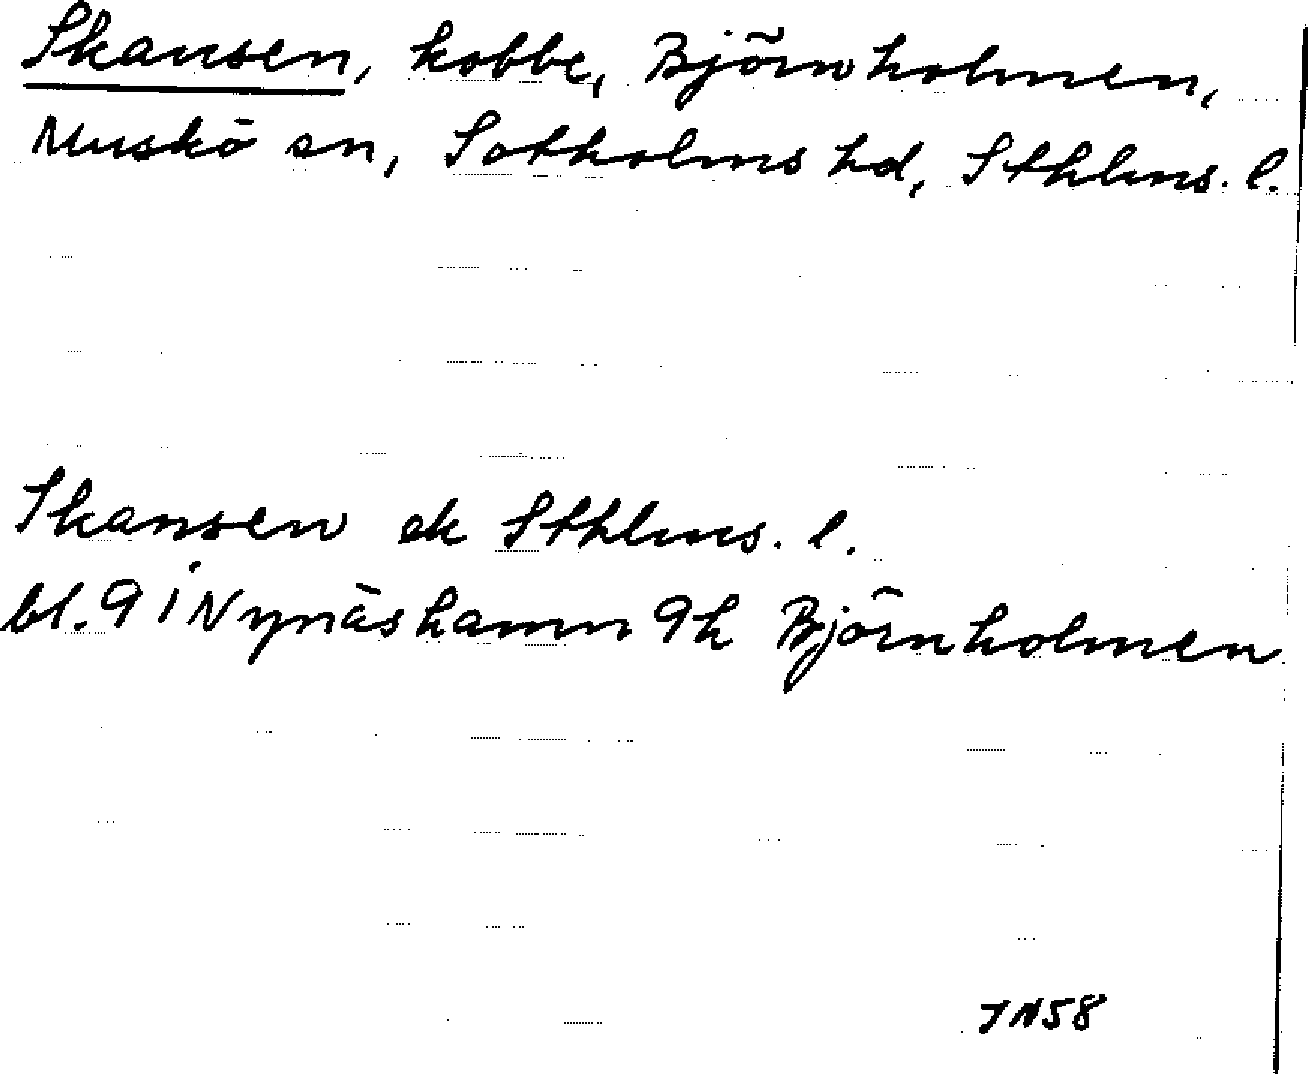 Skansen, kobbe, Björnholmen,
Muskö sn, Sotholms hd, Sthlms. l.
Skansen ek Sthlms. l.
bl. 9 i Nynäshamn 9h Björnholmen
JN58